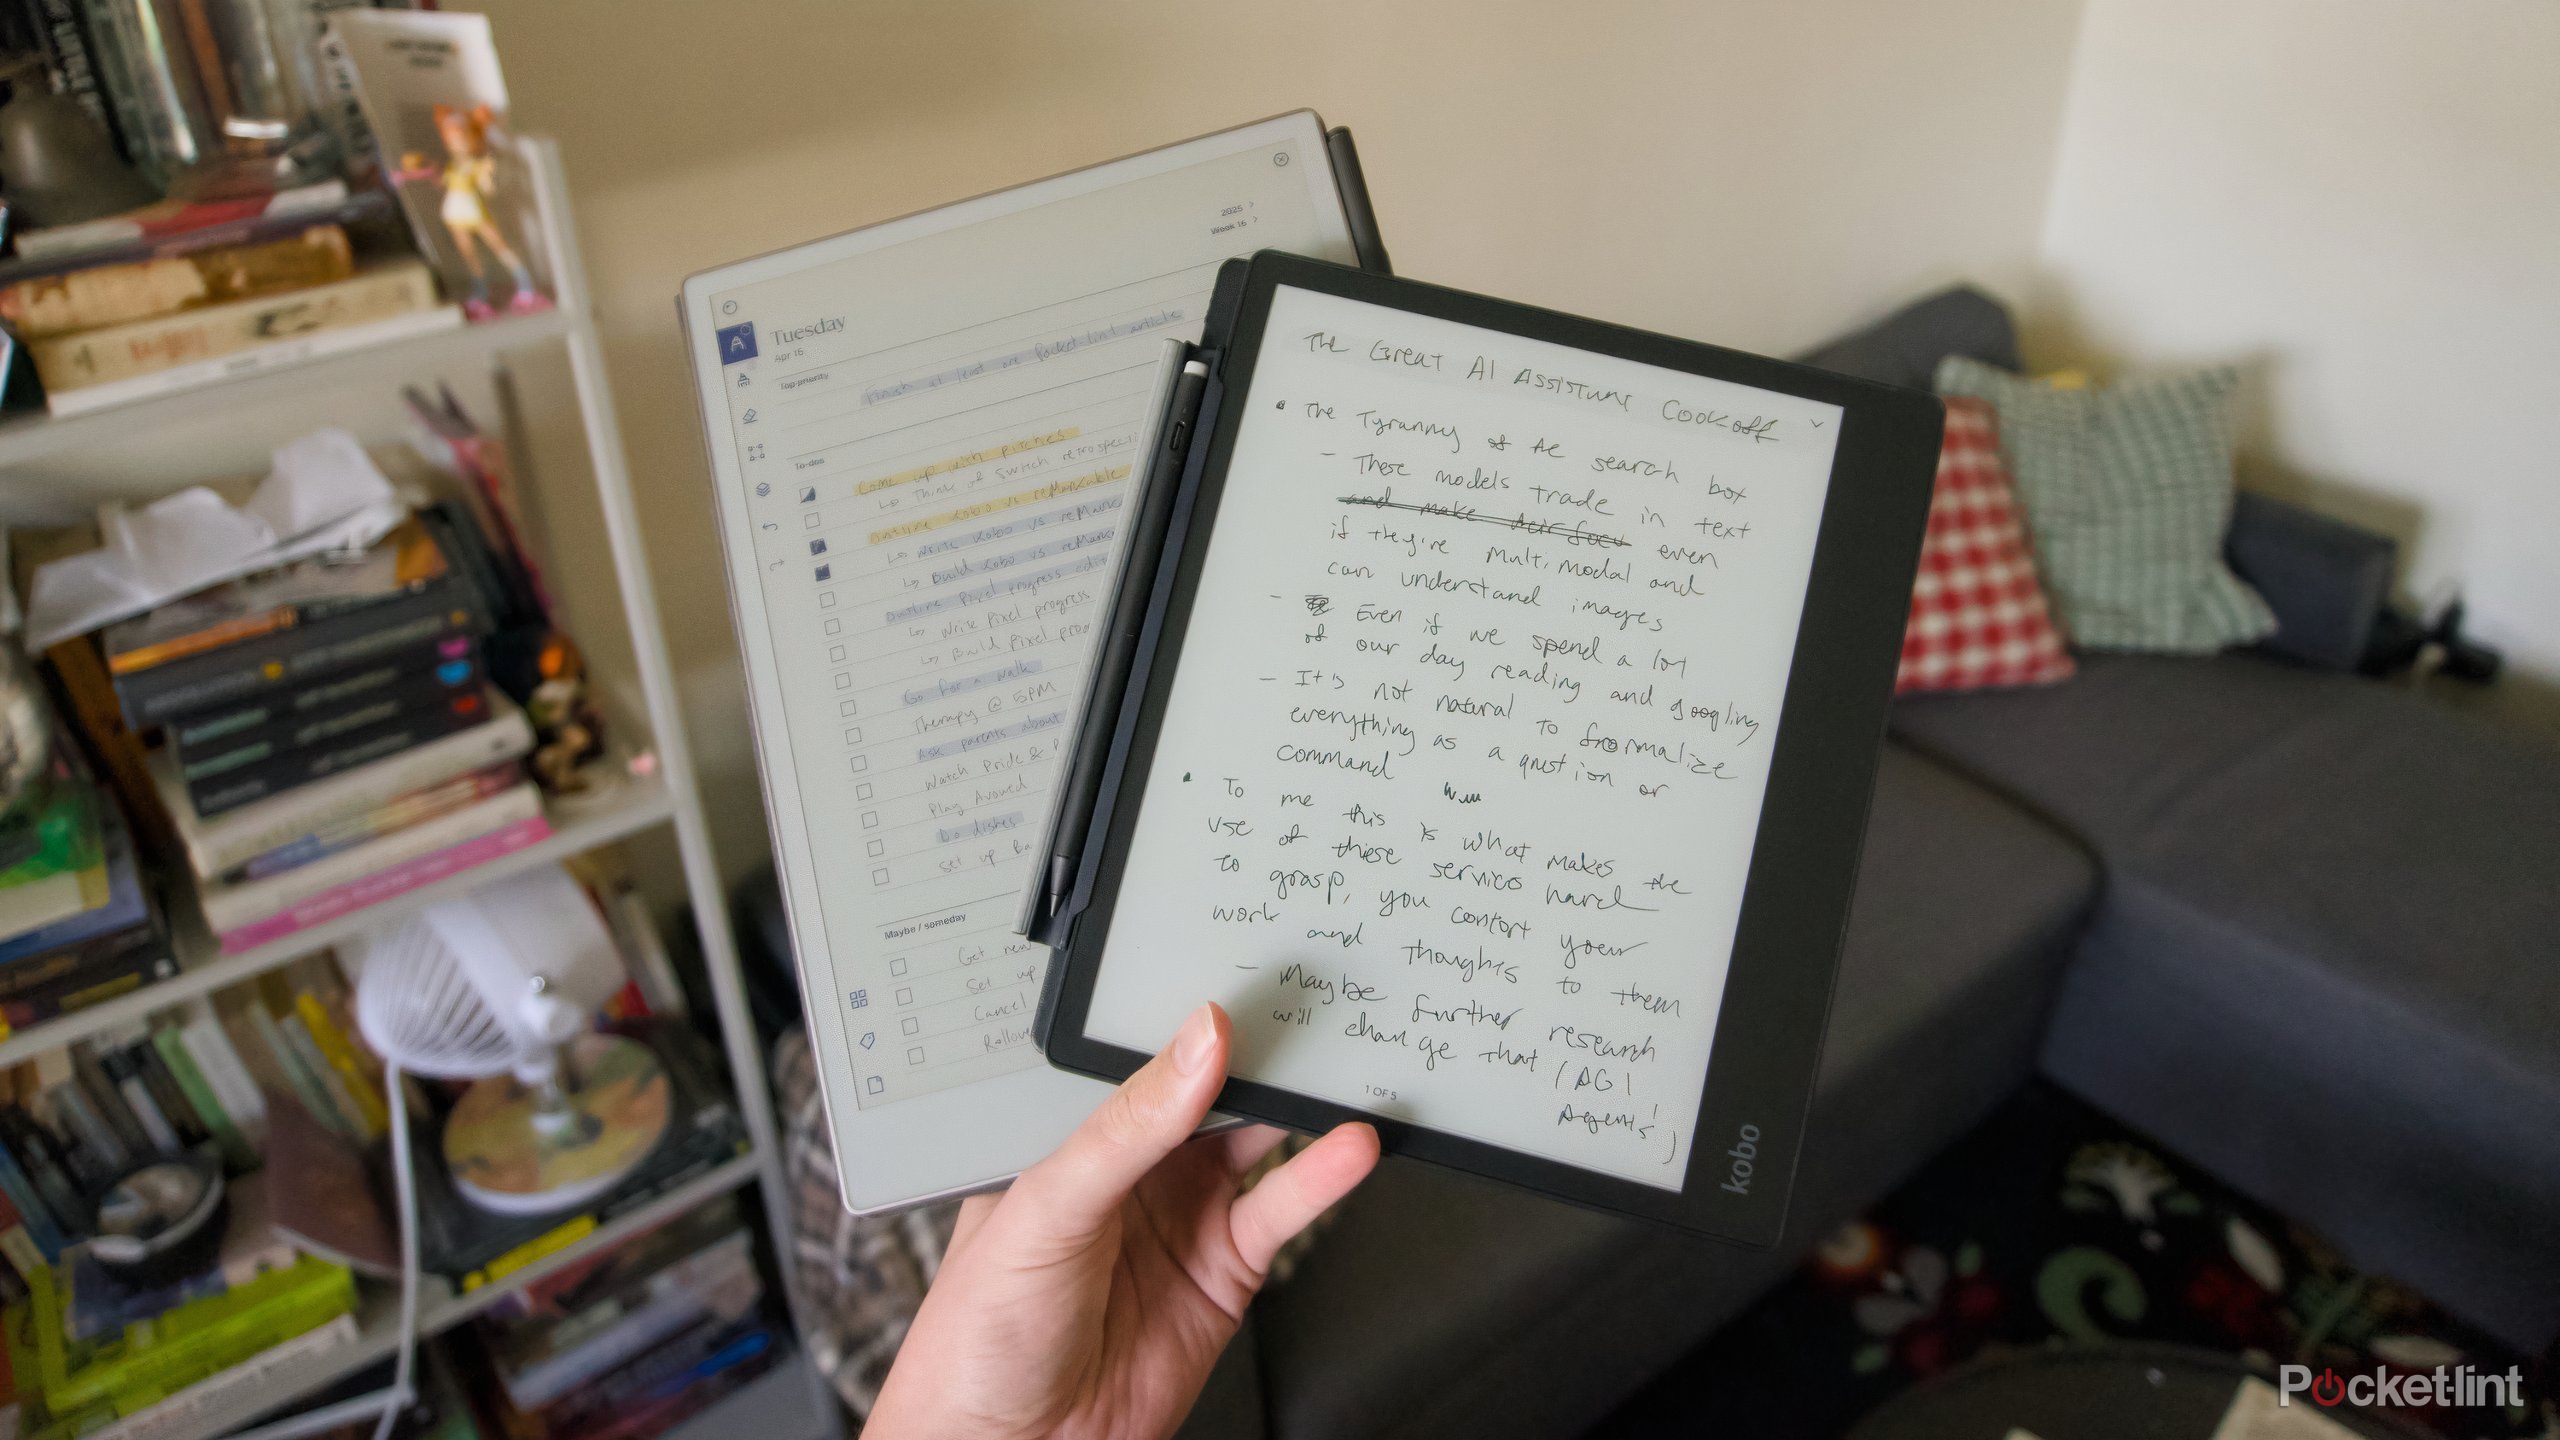 2025 >
Week 16 >
Tuesday
Apr 15
Top priority
Finish at least one Pocket-lint article
To-dos
Come up with pitches
↳ Think of Switch retrospecti
Outline Kobo vs reMarkable
↳ Write Kobo vs reMark
↳ Build Kobo vs reMark
Outline Pixel progress edit
↳ Write Pixel progress
↳ Build Pixel pro
Go for a walk
Therapy @ 5PM
Ask parents about
Watch Pride & P
Play Avowed
Do dishes
Set up Ba
Maybe / someday
Get new
Set up
Cancel
Rollove
The Great AI Assistant Cookoff
• The Tyranny of the search bot
- These models trade in text
and make their focu even
if they're multimodal and
can understand images
- Even if we spend a lot
of our day reading and googling
- It's not natural to formalize
everything as a question or
command
• To me this is what makes the
use of these services hard
to grasp, you contort your
work and thoughts to them
- Maybe further research
will change that (AGI
Agents!)
1 OF 5
kobo
Pocket-lint